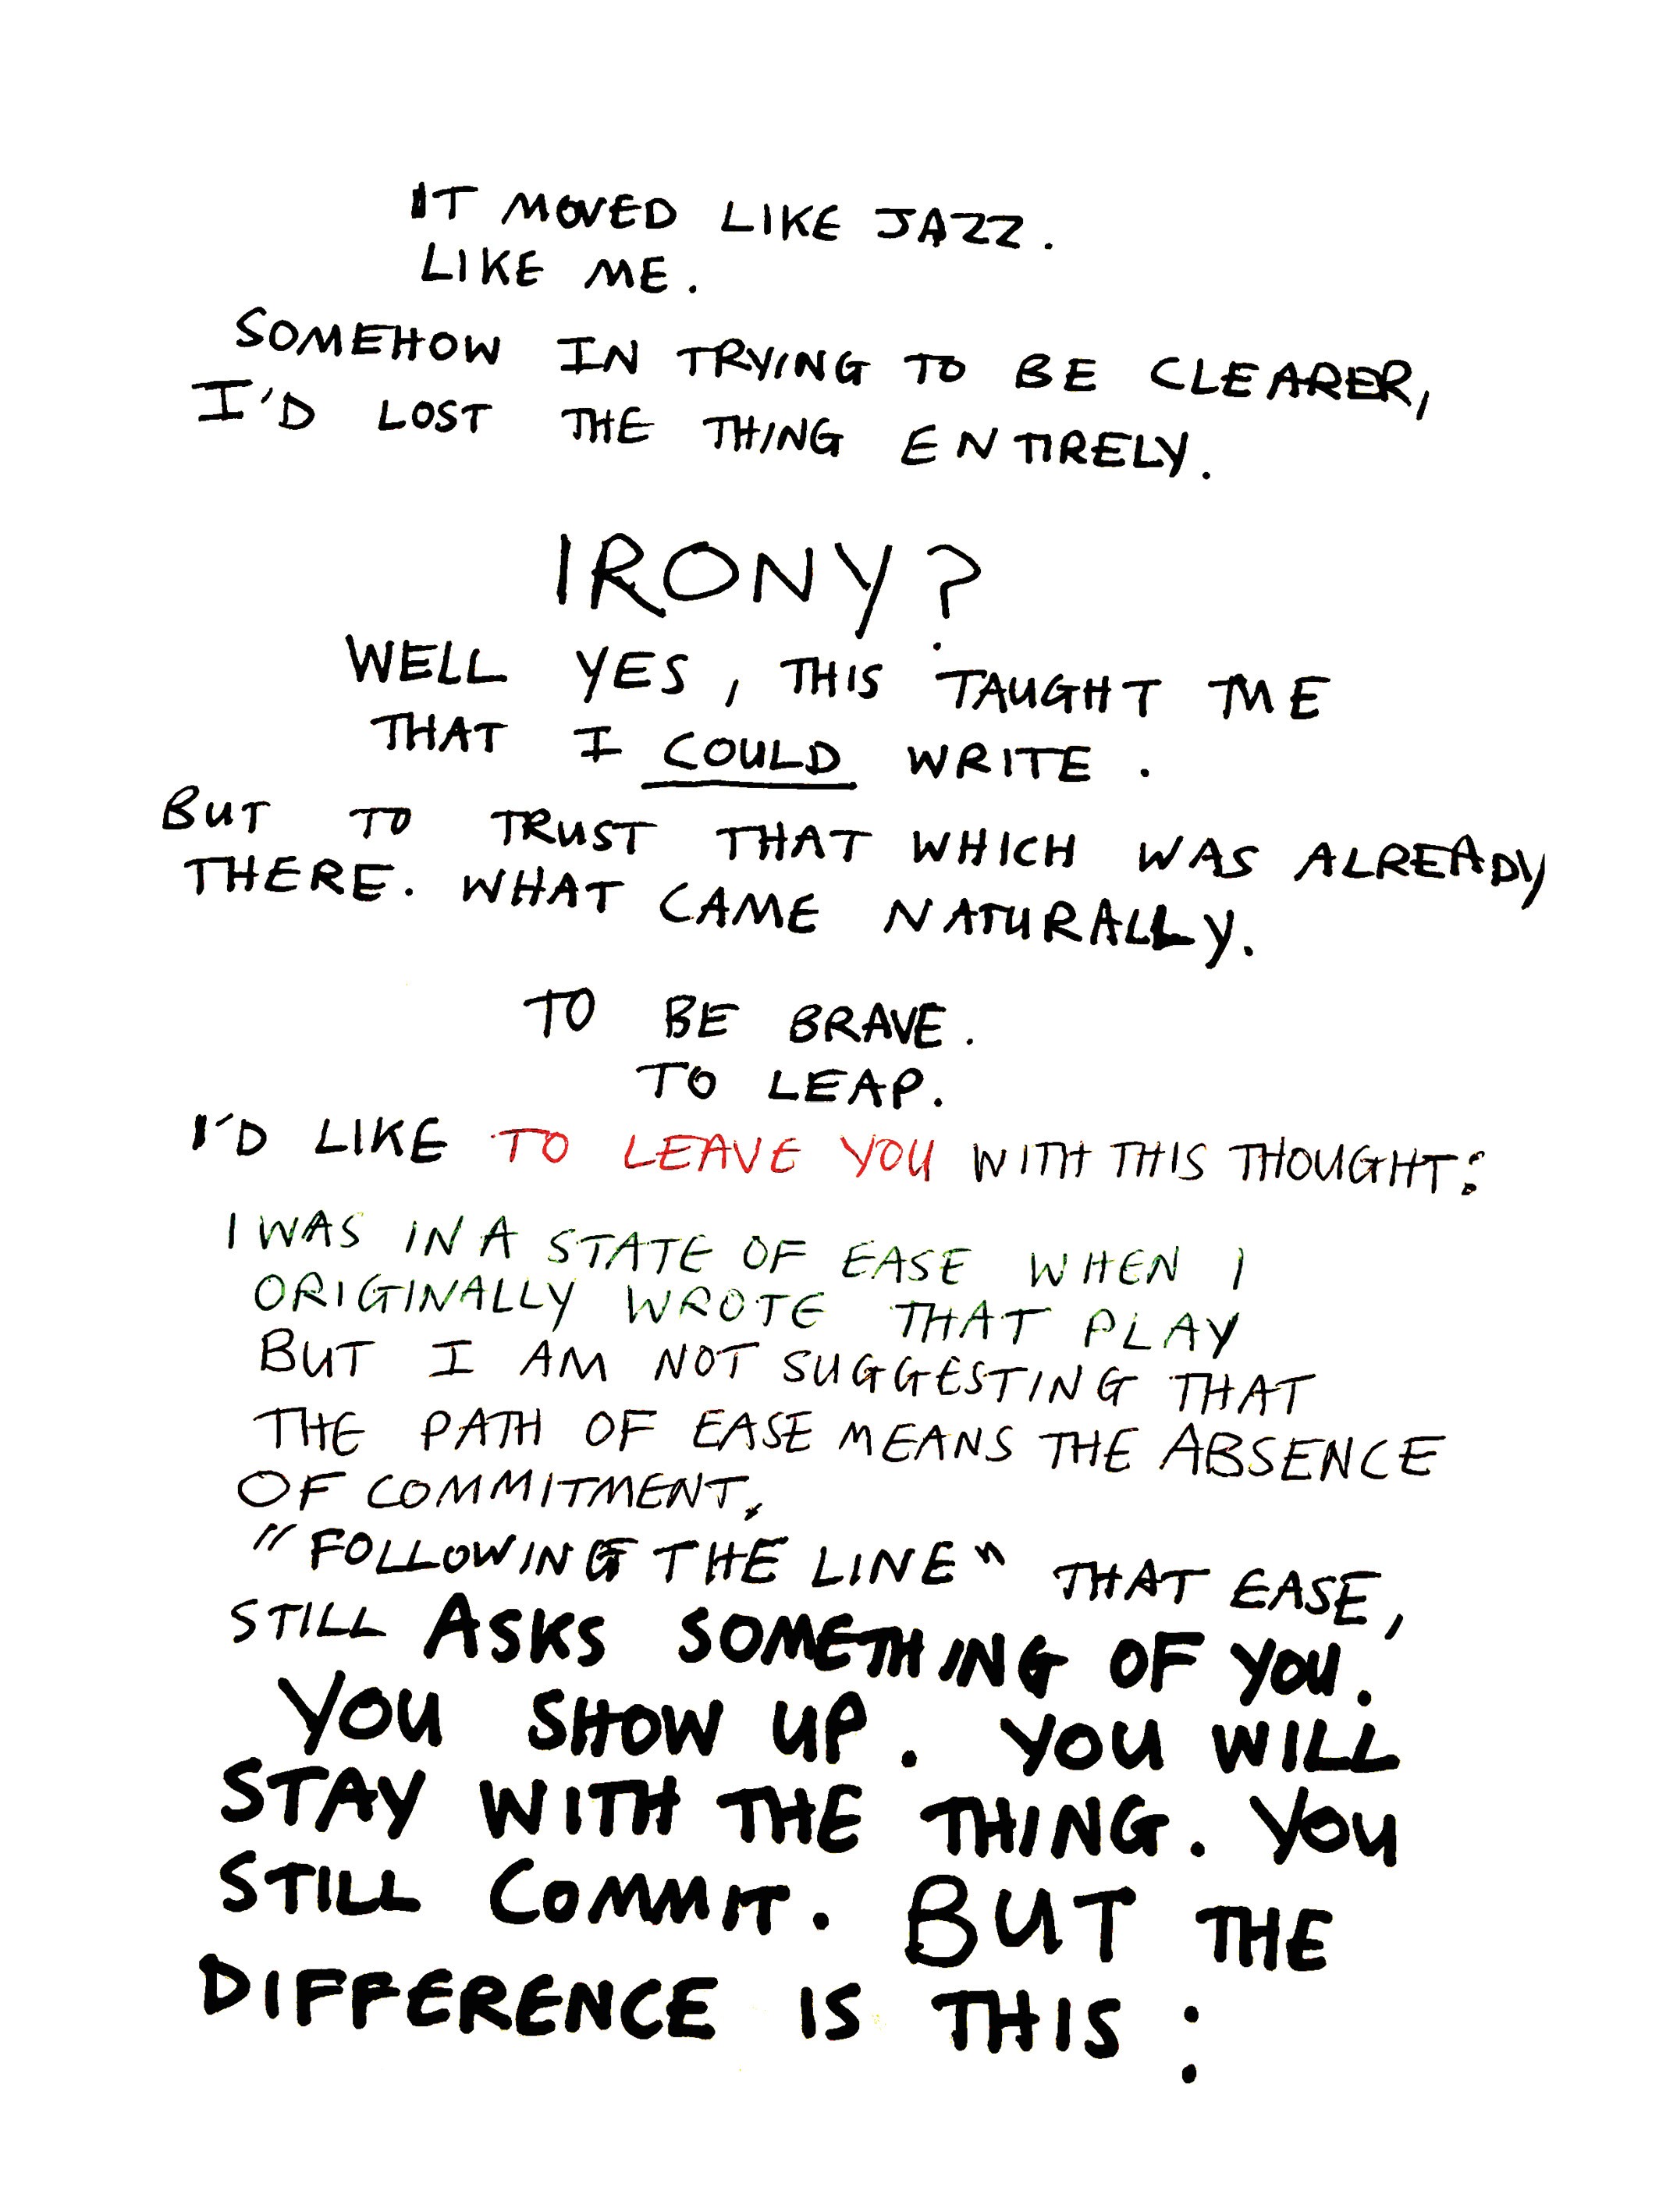 IT MOVED LIKE JAZZ.
LIKE ME.
SOMEHOW IN TRYING TO BE CLEARER,
I'D LOST THE THING ENTIRELY.
IRONY?
WELL YES, THIS TAUGHT ME
THAT I COULD WRITE.
BUT TO TRUST THAT WHICH WAS ALREADY
THERE. WHAT CAME NATURALLY.
TO BE BRAVE.
TO LEAP.
I'D LIKE TO LEAVE YOU WITH THIS THOUGHT:
I WAS IN A STATE OF EASE WHEN I
ORIGINALLY WROTE THAT PLAY
BUT I AM NOT SUGGESTING THAT
THE PATH OF EASE MEANS THE ABSENCE
OF COMMITMENT.
"FOLLOWING THE LINE" THAT EASE,
STILL ASKS SOMETHING OF YOU.
YOU SHOW UP. YOU WILL
STAY WITH THE THING. YOU
STILL COMMIT. BUT THE
DIFFERENCE IS THIS: